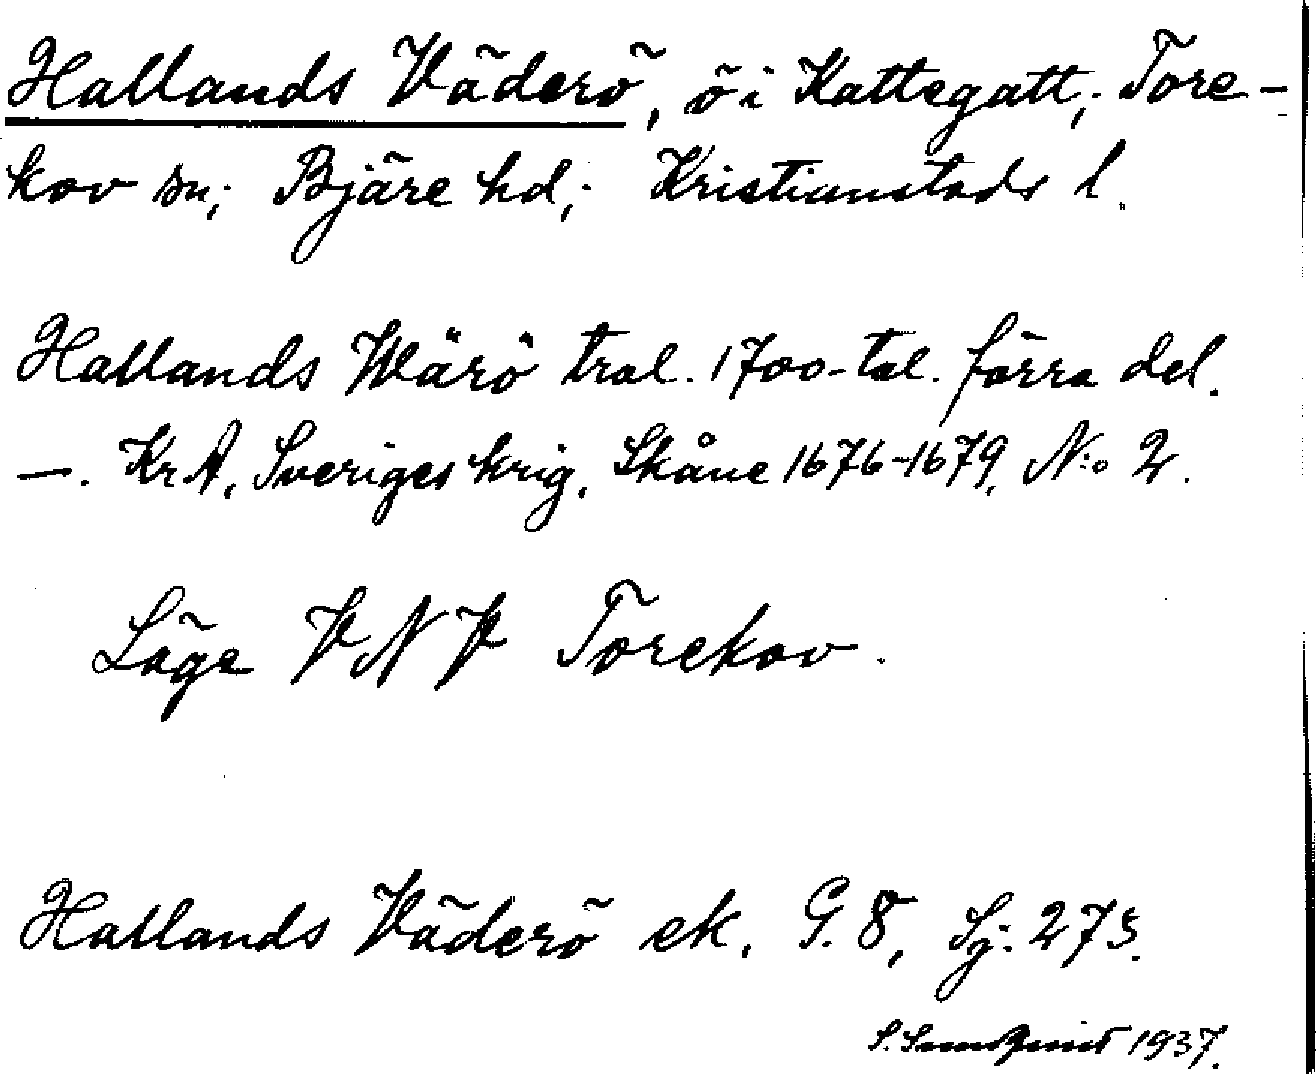 Hallands Väderö, ö i Kattegatt; Tore-
kov sn; Bjäre hd; Kristianstads l.
Hallands Wärö trol. 1700-tal. förra del.
—. KrA, Sveriges krig, Skåne 1676-1679, N:o 2.
Läge VNV Torekov.
Hallands Väderö ek. G. 8, Sj. 273.
S. 1937.